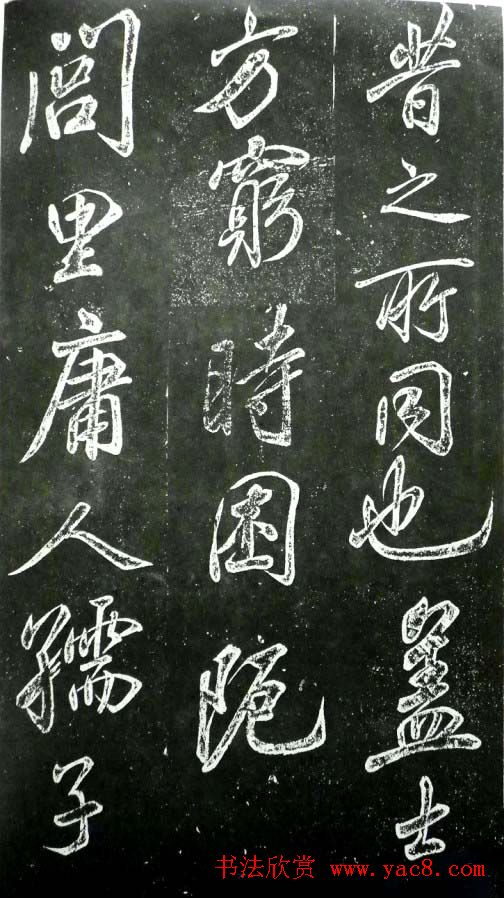 昔之所同也蓋士
方窮時困阨
閭里庸人孺子
书法欣赏 www.yac8.com